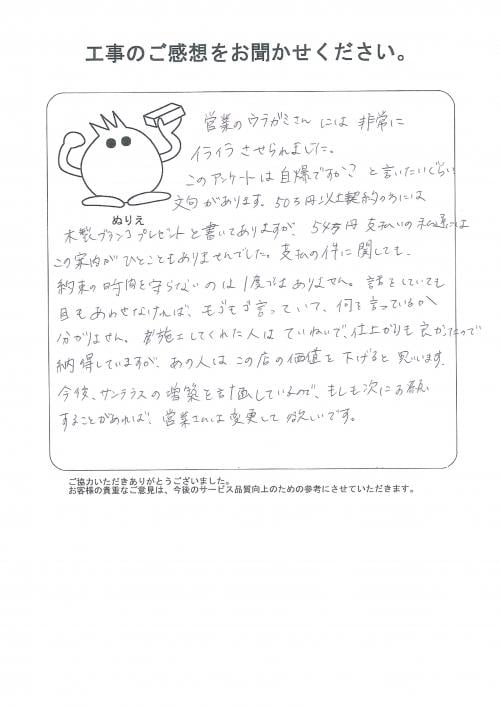 工事のご感想をお聞かせください。
営業のウラガミさんには非常に
イライラさせられました。
このアンケートは自爆ですか？と言いたいぐらい
文句があります。50万円以上契約の方には
ぬりえ
木製ブランコプレゼントと書いてありますが、54万円支払いの私達には
この案内がひとこともありませんでした。支払の件に関しても、
約束の時間を守らないのは1度ではありません。話をしていても
目もあわせなければ、モゴモゴ言っていて、何を言っているか
分かりません。施工してくれた人はていねいで、仕上がりも良かったので
納得していますが、あの人はこの店の価値を下げると思います。
今後、サンテラスの増築を計画しているので、もしも次にお願い
することがあれば、営業さんは変更して欲しいです。
ご協力いただきありがとうございました。
お客様の貴重なご意見は、今後のサービス品質向上のための参考にさせていただきます。